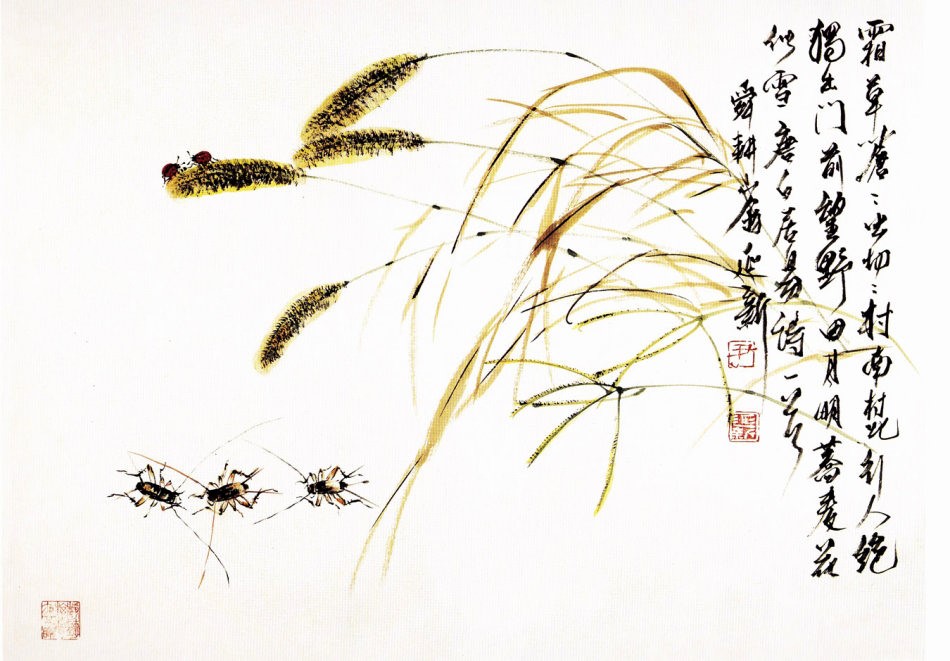 霜草蒼〻虫切〻村南村北行人絕
獨出门前望野田月明蕎麥花
似雪唐白居易詩一首
舜耕延新